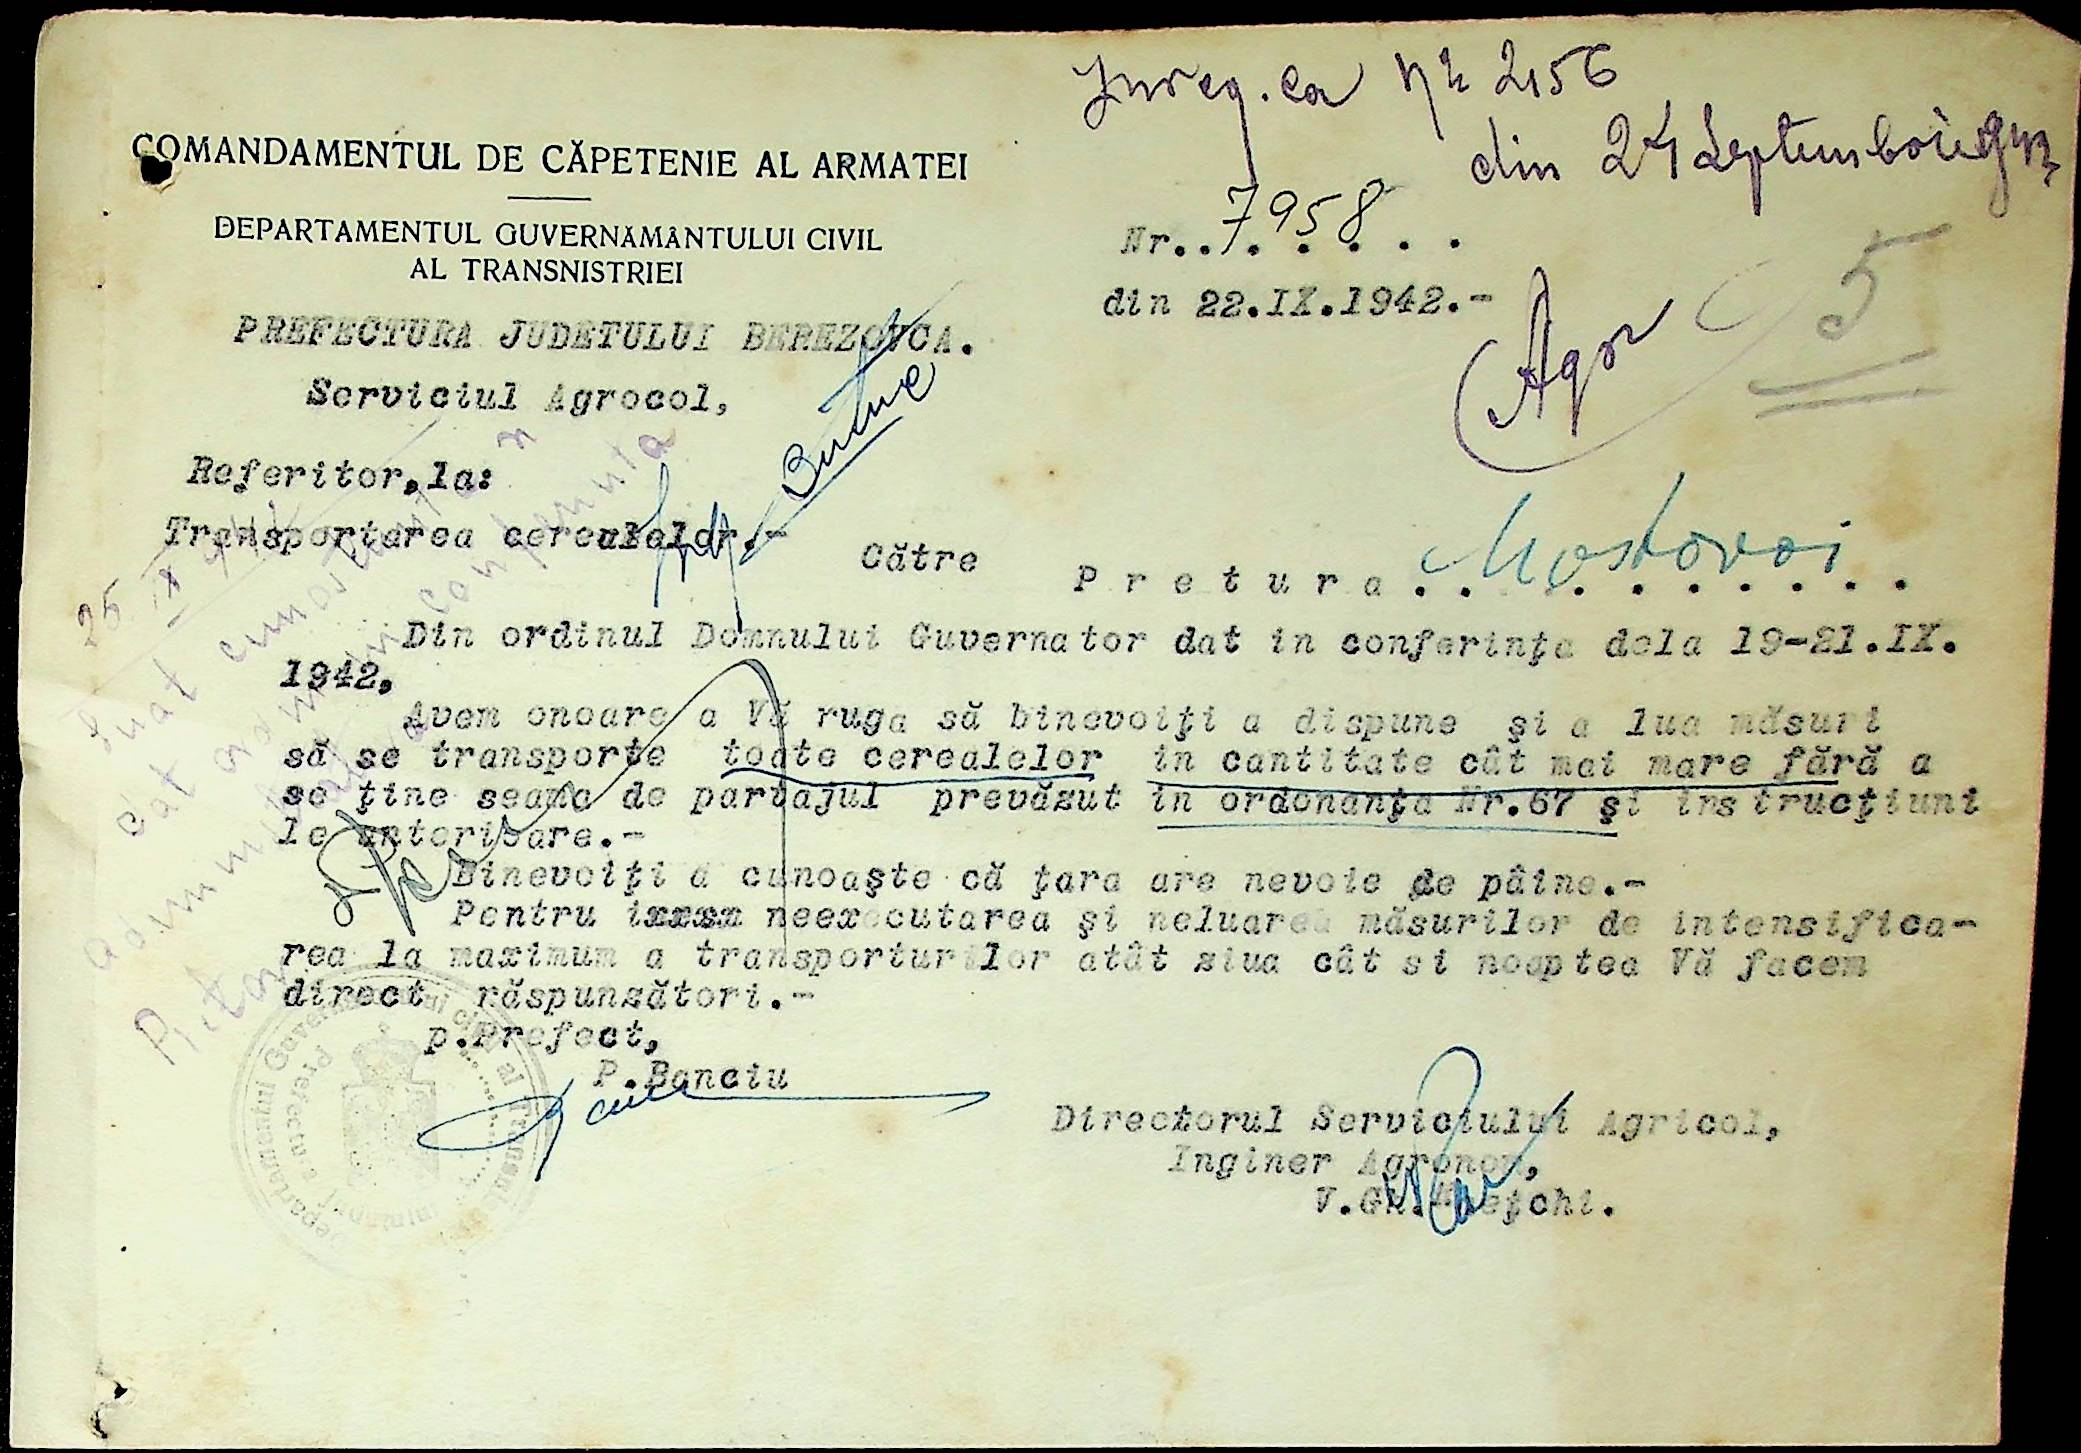 Inreg. ca Nr 2156
din 24 Septembrie 942
COMANDAMENTUL DE CĂPETENIE AL ARMATEI
DEPARTAMENTUL GUVERNĂMÂNTULUI CIVIL
AL TRANSNISTRIEI
PREFECTURA JUDETULUI BEREZOVCA.
Serviciul Agrocol,
Nr..7958. . .
din 22.IX.1942.-
Agr
5
Referitor,la:
Transportarea cerealelor.-
Către
P r e t u r a . Mostovoi . .
25 IX
Luat cunostinta
dat
Pretor
Din ordinul Domnului Guvernator dat in conferinţa dela 19-21.IX.
1942,
Avem onoare a Vă ruga să binevoiţi a dispune şi a lua măsuri
să se transporte toate cerealelor in cantitate cât mai mare fără a
se ţine seama de partajul prevăzut in ordonanţa Nr.67 şi instrucţiuni
le anterioare.-
Binevoiţi a cunoaşte că ţara are nevoie de pâine.-
Pentru neexecutarea şi neluarea măsurilor de intensifica-
rea la maximum a transporturilor atât ziua cât si noaptea Vă facem
direct răspunzători.-
p.Prefect,
P.Banciu
Directorul Serviciului Agricol,
Inginer Agronom,
V.Gh.